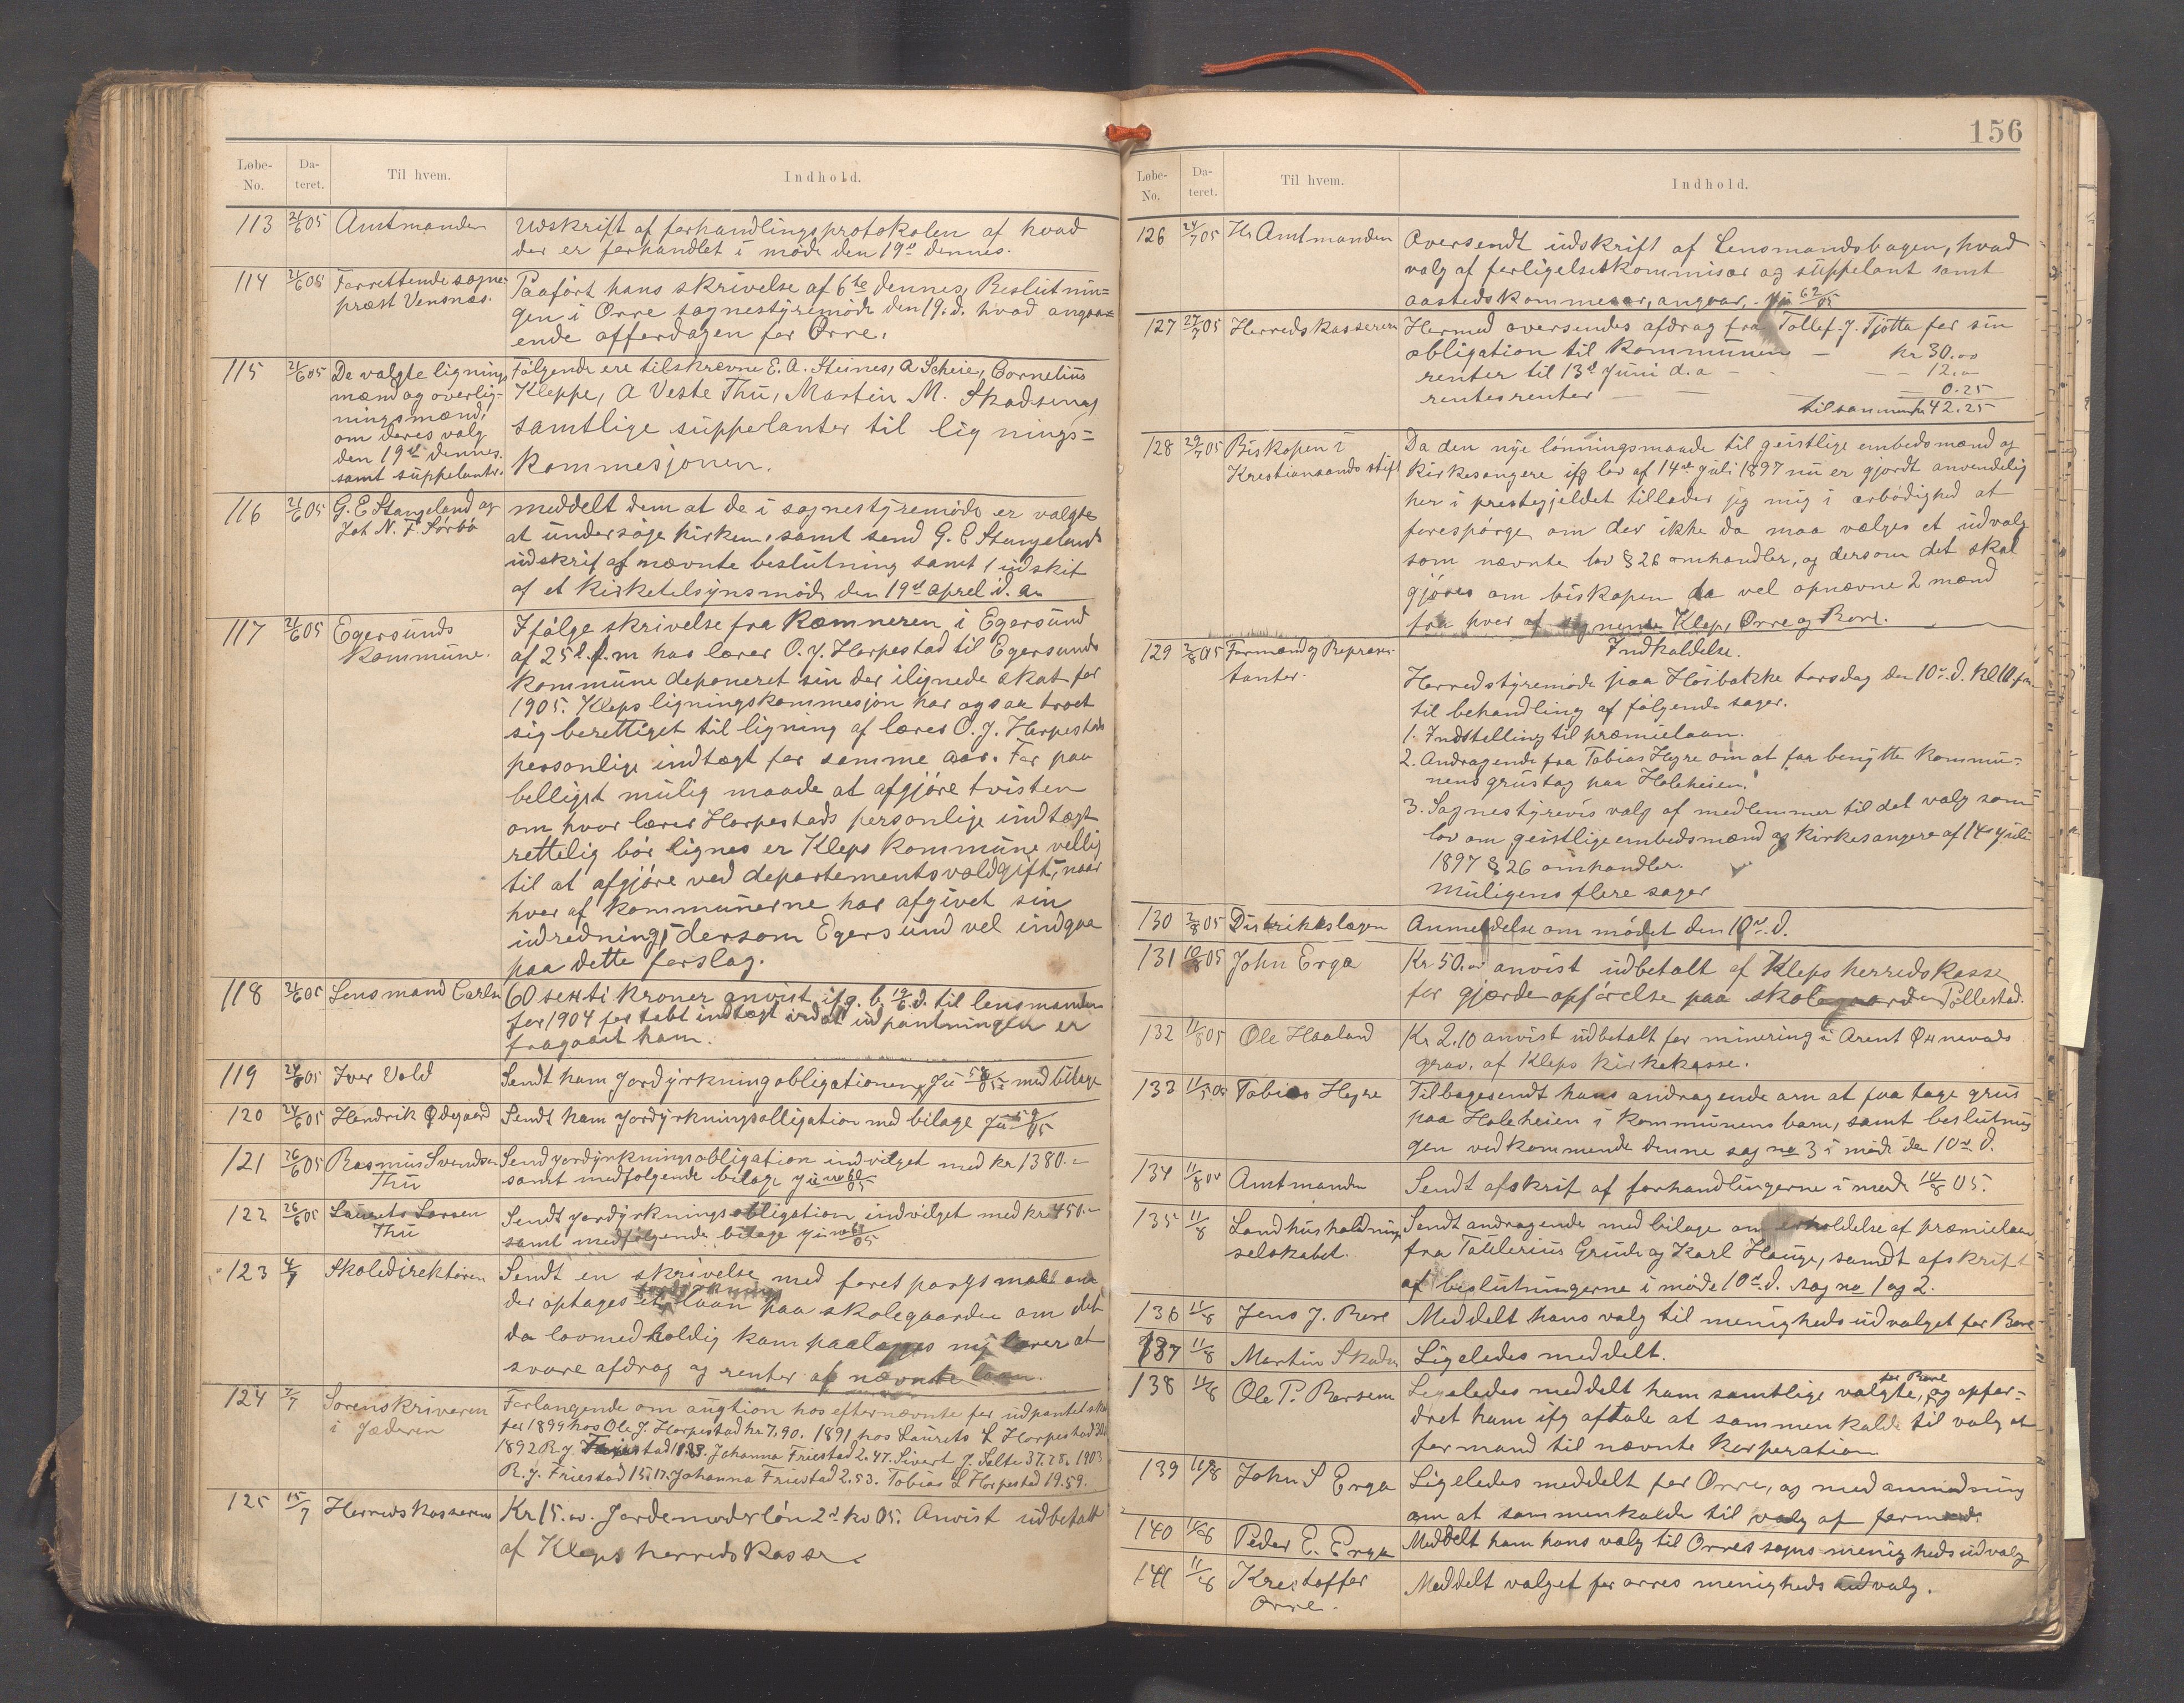 Løbe-No. Da-teret. Til hvem. Indhold.
113 21/6 05 Amtmanden Udskrift af forhandlingsprotokolen af hvad
der er forhandlet i møde den 19de dennes.
114 21/6 05 Forrettende sogne- Paaført hans skrivelse af 6te dennes, Beslutnin=
præst Vensnæs. gen i Orre sognestyremøde den 19. d. hvad angaa=
ende offerdagen for Orre.
115 21/6 05 De valgte lignings Følgende ere tilskrevne E. A. Steines, A Scheie, Cornelius
mænd og overlig- Kleppe, A Veste Thu, Martin M. Skadsem,
ningsmænd, samtlige suppelanter til lignings=
om deres valg kommesjonen.
den 19de dennes.
samt suppelanter.
116 21/6 05 G. E Stangeland og meddelt dem at de i sognestyremøde er valgte
Joh N. F. Sørbø at undersøge kirken, samt send G. E Stangeland
udskrif af nævnte beslutning samt 1 udskit
af et kirketilsynsmøde den 19de aprel d. a.
117 21/6 05 Egersunds Ifølge skrivelse fra Kæmneren i Egersund
kommune. af 25 d. f. m har lærer O. J. Horpestad til Egersunds
kommune deponeret sin der ilignede skat for
1905. Kleps ligningskommesjon har ogsaa troet
sig berettiget til ligning af lærer O. J. Horpestads
personlige indtægt for samme aar. For paa
belligst mulig maade at afgjøre tvisten
om hvor lærer Horpestads personlige indtægt
rettelig bør lignes er Kleps kommune vellig
til at afgjøre ved departementsvoldgift, naar
hver af kommunerne har afgivet sin
udredning, dersom Egersund vel indgaa
paa dette forslag.
118 21/6 05 Lensmand Carlsen 60 sexti kroner anvist ifg. b. 19/6 d. til lensmanden
for 1904 for tabt indtægt ved at udpantningen er
fragaaet ham.
119 24/6 05 Iver Vold Sendt ham Jordyrkningobligationen, Ju 58/05 med bilage
120 24/6 05 Hendrik Ødegaard Sendt ham Jordyrkningsolligation med bilage Ju 59/05
121 26/6 05 Rasmus Svendsen Send jordyrkningsobligation indvilget med kr 1380.-
Thu samt medfølgende bilage Ju no 60/05
122 26/6 05 Laurets Larsen Sendt jordyrkningsobligation indvilget med kr 450.-
Thu samt medfølgende bilage Ju no 61/05
123 4/7 Skoledirektøren Sendt en skrivelse med foret porgsmaal om
der optages et laan paa skolegaarden om det
da lovmedholdig kam paalægges ny lærer at
svare afdrag og renter af nævnte laan.
124 7/7 Sorenskriveren Forlangende om augtion hos efternævnte for udpantet skat
i Jæderen for 1899 hos Ole J. Horpestad kr 7.90. 1891 hos Laurets L Horpestad
1892 R. J Friestad Johanna Friestad 2.47. Sivert J. Salte 37.28. 1903
R. J. Friestad 15.17. Johanna Friestad 2.53. Tobias L Horpestad 19.59.
125 15/7 Herreds kasseren Kr 15.00. Jordemoderløn 2d kv 05. Anvist udbetalt
af Kleps herreds kasse.
156
Løbe-No. Da-teret. Til hvem. Indhold.
126 24/7 05 Hr Amtmanden Oversendt udskrift af Lensmandsbogen, hvad
valg af forligelseskommisær og suppelant samt
aastedskommesær, angaar, Ju 62/05
127 27/7 05 Herreds kasseren Hermed oversendes afdrag fra Tollef. J. Tjøtta for sin
obligation til kommunen - kr 30.00
renter til 13d Juni d. a - - - 12.00
rentesrenter - - 0.25
tilsammen kr 42.25
128 29/7 05 Biskopen i Da den nye lønningsmaade til geistlige embedsmænd og
Krestiansands stift kirkesangere ifg lov af 14de juli 1897 nu er gjordt anvendelig
her i prestegjeldet tillader jeg mig i ærbødighed at
forespørge om der ikke da maa vælges et udvalg
som nævnte lov § 26 omhandler, og dersom det skal
gjøres om biskopen da vel opnævne 2 mænd
fra hver af sognene Klep, Orre og Bore.
129 2/8 05 Formænd og Repræsen- Indkaldelse.
tanter. Herredstyremøde paa Høibakke torsdag den 10de d. kl 10 fm
til behandling af følgende sager.
1. Indstilling til præmielaan.
2. Andragende fra Tobias Hegre om at faa benytte kommu=
nens grustag paa Holeheien.
3. Sognestyrevis valg af medlemmer til det valg som
lov om geistlige embedsmænd og kirkesangere af 14 juli
1897 § 26 omhandler.
Muligens flere sager
130 2/8 05 Distrikslægen Anmeldelse om mødet den 10de d.
131 10/8 05 John Erga Kr 50.00 anvist udbetalt af Kleps herreds kasse
for gjærde opførelse paa skolegaarden Pollestad.
132 11/8 05 Ole Haaland Kr 2.10 anvist udbetalt for minering i Arent Øxnevads
grav. af Kleps kirkekasse.
133 11/8 05 Tobias Hegre Tilbagesendt hans andragende om at faa tage grus
paa Holeheien i kommunens bam, samt beslutnin
gen vedkommende denne sag no 3 i møde den 10de d.
134 11/8 05 Amtmanden Sendt afskrif af forhandlingerne i møde 10/8 05.
135 11/8 Landhusholdnings Sendt andragende med bilage om erholdelse af præmielaan
selskabet. fra Taulerius Grude og Karl Hauge, samdt afskrift
af beslutningerne i møde 10de d. sag no 1 og 2.
136 11/8 Jens J. Bore Meddelt hans valg til menighedsudvalget for Bore
137 11/8 Martin Skadsem Ligeledes meddelt.
138 11/8 Ole P. Borsem Ligeledes meddelt ham samtlige valgte, for Bore og opfor=
dret ham ifg aftale at sammenkalde til valg at
formand til nævnte korperation
139 11/8 John S Erga Ligeledes meddelt for Orre, og med anmodning
om at sammenkalde til valg af formand.
140 11/8 Peder E. Erga Meddelt ham hans valg til Orres sogns menighedsudvalg
141 11/8 Krestoffer Meddelt valget for orres menigheds udvalg.
Orre.